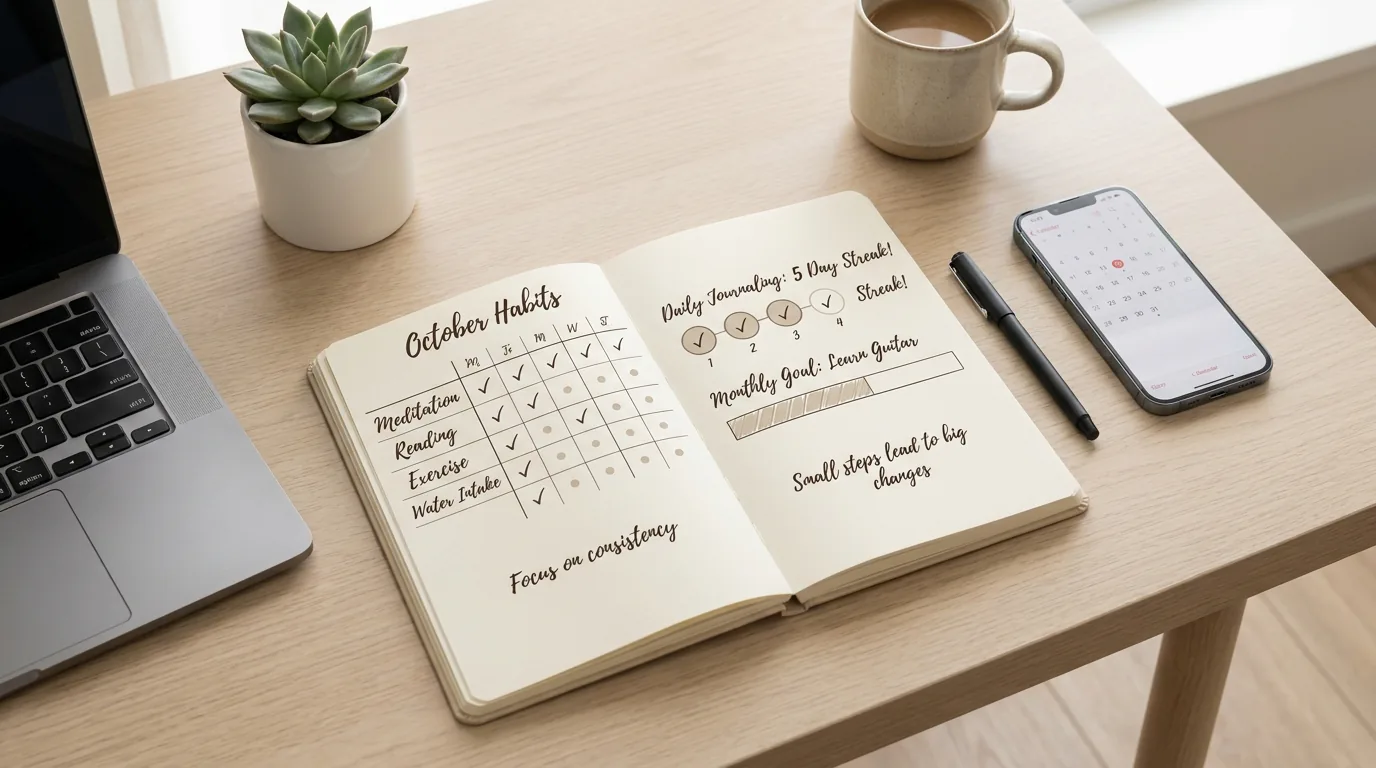 October Habits
M T M W J
Meditation ✓ ✓ ✓ ✓ ✓
Reading ✓ ✓
Exercise ✓ ✓
Water Intake ✓
✓
Focus on consistency
Daily Journaling: 5 Day Streak!
✓ ✓ ✓ ✓ Streak!
1 2 3 4
Monthly Goal: Learn Guitar
Small steps lead to big
changes